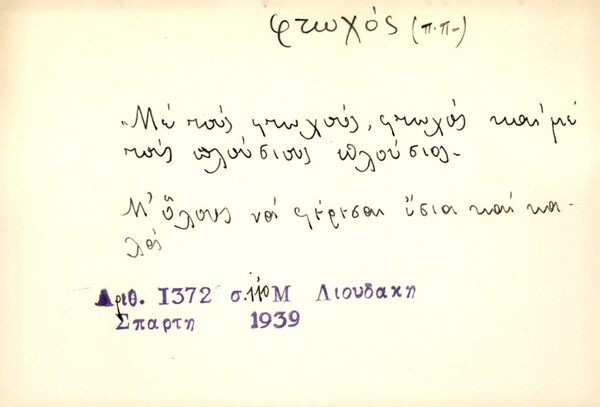 φτωχός (π.π-)
"Μέ τούς φτωχούς, φτωχός καί μέ
τούς πλούσιους πλούσιος.
Μ' ὅλους νά φέρεσαι ἴσια καί κα-
λά
Αριθ. 1372 σ. 110 Μ Λιουδακη
Σπαρτη 1939